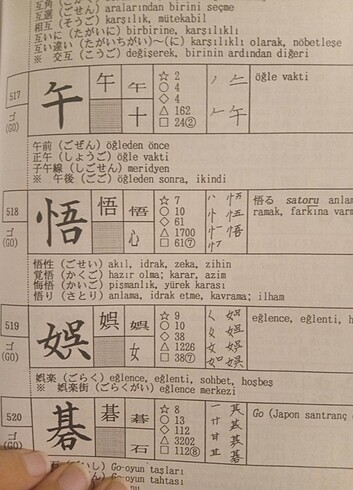 互角（ごかく）
互選（ごせん）aralarından birini seçme
相互（そうご）karşılık, mütekabil
互いに（たがいに）birbirine, karşılıklı
互い違い（たがいちがい）～（に）karşılıklı olarak, nöbetleşe
※ 交互（こうご）değişerek, birinin ardından diğeri
517
ゴ
(GO)
午
午
午
十
☆ 2
○ 4
◇ 4
△ 162
□ 24②
öğle vakti
午前（ごぜん）öğleden önce
正午（しょうご）öğle vakti
子午線（しごせん）meridyen
※ 午後（ごご）öğleden sonra, ikindi
518
ゴ
(GO)
悟
悟
悟
心
☆ 7
○ 10
◇ 61
△ 1700
□ 61⑦
悟る satoru anla
ramak, farkına var
悟性（ごせい）akıl, idrak, zeka, zihin
覚悟（かくご）hazır olma; karar, azim
悔悟（かいご）pişmanlık, yürek karası
悟り（さとり）anlama, idrak etme, kavrama; ilham
519
ゴ
(GO)
娯
娯
娯
女
☆ 9
○ 10
◇ 38
△ 1226
□ 38⑦
eğlence, eğlenti, h
娯楽（ごらく）eğlence, eğlenti, sohbet, hoşbeş
※ 娯楽街（ごらくがい）eğlence merkezi
520
ゴ
(GO)
碁
碁
碁
石
☆ 8
○ 13
◇ 112
△ 3202
□ 112⑧
Go (Japon santranç
Go-oyun taşları
Go-oyun tahtası